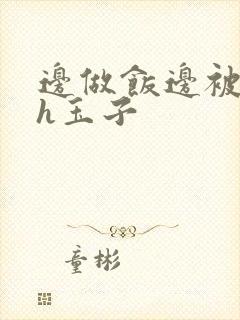 邊做飯邊被
h玉子
童彬